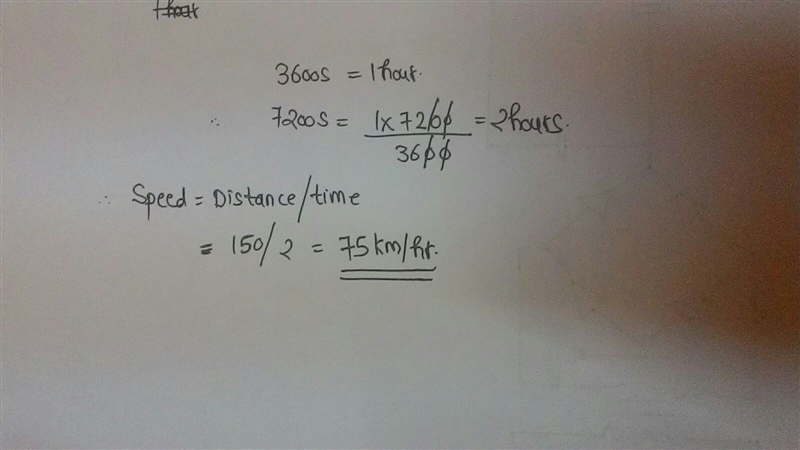 3600s = 1 hour.
∴ 7200s = 1x7200/3600 = 2 hours.
∴ Speed = Distance/time
= 150/2 = 75 km/hr.